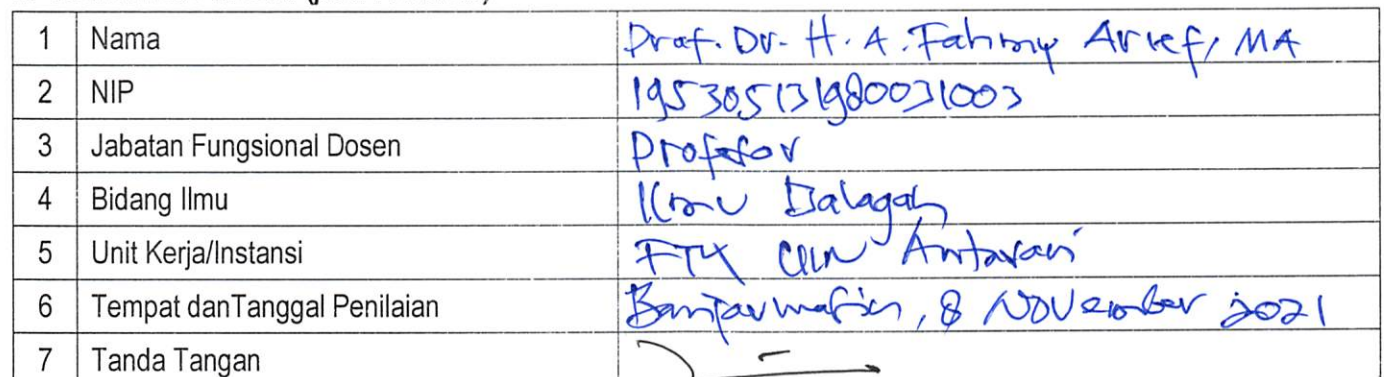 1 Nama Prof. Dr. H. A. Fahmy Arief, MA
2 NIP 195305131980031003
3 Jabatan Fungsional Dosen Profesor
4 Bidang Ilmu Ilmu Balagah
5 Unit Kerja/Instansi FTK UIN Antasari
6 Tempat danTanggal Penilaian Banjarmasin, 8 November 2021
7 Tanda Tangan